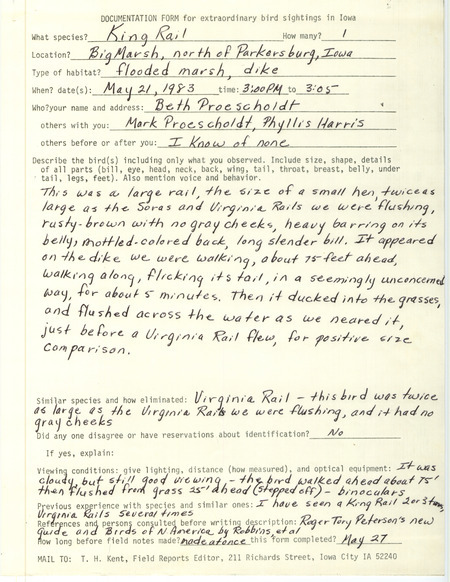 DOCUMENTATION FORM for extraordinary bird sightings in Iowa
What species? King Rail How many? 1
Location? Big Marsh, north of Parkersburg, Iowa
Type of habitat? flooded marsh, dike
When? date(s): May 21, 1983 time: 3:00PM to 3:05
Who? your name and address: Beth Proescholdt
others with you: Mark Proescholdt, Phyllis Harris
others before or after you: I know of none
Describe the bird(s) including only what you observed. Include size, shape, details
of all parts (bill, eye, head, neck, back, wing, tail, throat, breast, belly, under
tail, legs, feet). Also mention voice and behavior.
This was a large rail, the size of a small hen, twice as
large as the Soras and Virginia Rails we were flushing,
rusty-brown with no gray cheeks, heavy barring on its
belly, mottled-colored back, long slender bill. It appeared
on the dike we were walking, about 75 feet ahead,
walking along, flicking its tail, in a seemingly unconcerned
way, for about 5 minutes. Then it ducked into the grasses,
and flushed across the water as we neared it,
just before a Virginia Rail flew, for positive size
comparison.
Similar species and how eliminated: Virginia Rail - this bird was twice
as large as the Virginia Rails we were flushing, and it had no
gray cheeks
Did any one disagree or have reservations about identification? No
If yes, explain:
Viewing conditions: give lighting, distance (how measured), and optical equipment: It was
cloudy, but still good viewing - the bird walked ahead about 75'
then flushed from grass 25' ahead (stepped off) - binoculars
Previous experience with species and similar ones: I have seen a King Rail 2 or 3 times,
Virginia Rails several times
References and persons consulted before writing description: Roger Tory Peterson's new
guide and Birds of N America by Robbins, et al
How long before field notes made? made at once this form completed? May 27
MAIL TO: T. H. Kent, Field Reports Editor, 211 Richards Street, Iowa City IA 52240